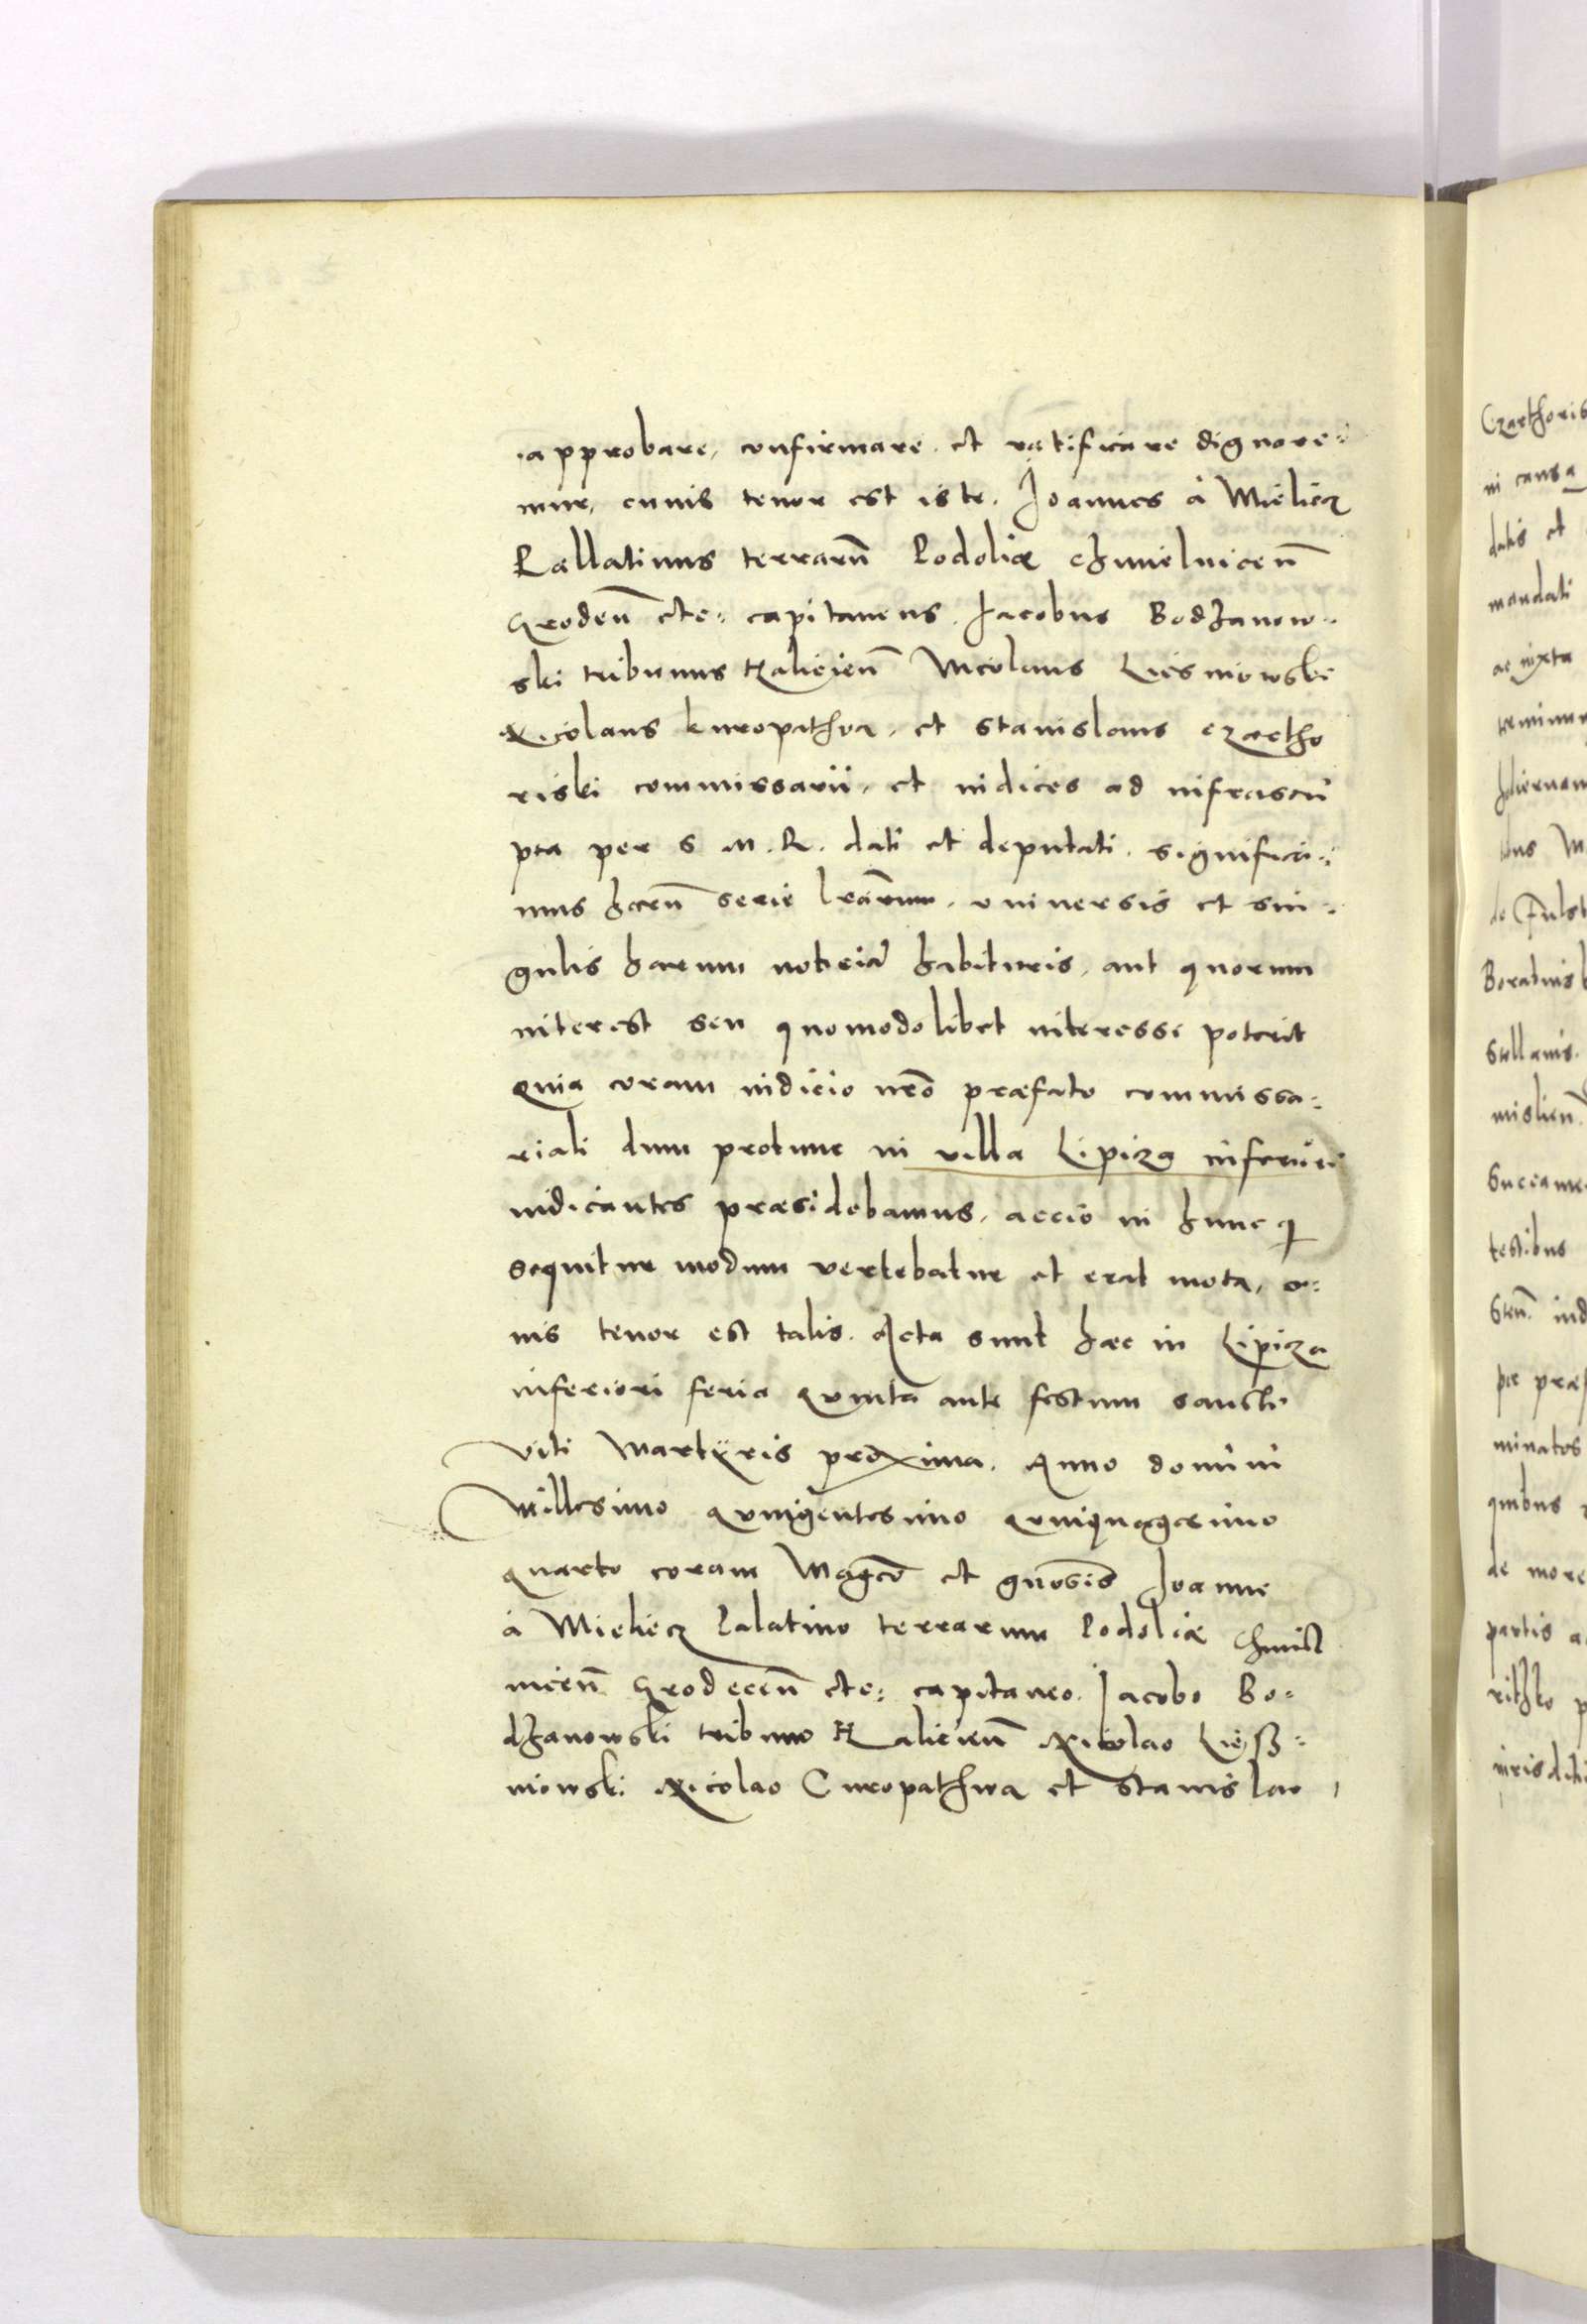 approbare, confirmare et ratificare dignore-
mur, cuius tenor est iste. Joannes à Mielięcz
Pallatinus terrarũ Podoliæ chmielnicen̄
Grodeñ etc: capitaneus Jacobus Bodzanow-
ski tribunus Halicieñ Nicolaus Liesniowski
Nicolaus kuropathva, et Stanislaus czartho
riski commissarii, et iudices ad infrascri
pta per S. M. R. dati et deputati. significa-
mus harũ serie lr̃arum, vniversis et sin-
gulis harum noticiã habituris, aut quorum
interest seu quomodolibet interesse poterit
Quia coram iudicio nr̃o præfato commissa-
riali dum protunc in villa Lipicza inferiori
iudicantes præsidebamus, accio in hunc q̃
sequitur modum vertebatur et erat mota, cu-
ius tenor est talis. Acta sunt hæc in Lipicza
inferiori feria Quinta ante festum sancti
Viti Martÿris proxima. Anno domini
Millesimo Quingentesimo Quinquagesimo
Quarto coram Magc̃o et gñosis Joanne
à Mielięcz Palatino terrarum Podoliæ Chmiel
niceñ Grodeceñ etc: capitaneo. Jacobo Bo-
dzanowski tribuno Halicieñ Nicolao Ließ-
niowski Nicolao Curopathwa et Stanislao
Czarthoris
in causa
datis et
mandati
ac iuxta
de Fulst
testibus
minatos
quibus
de more
partis